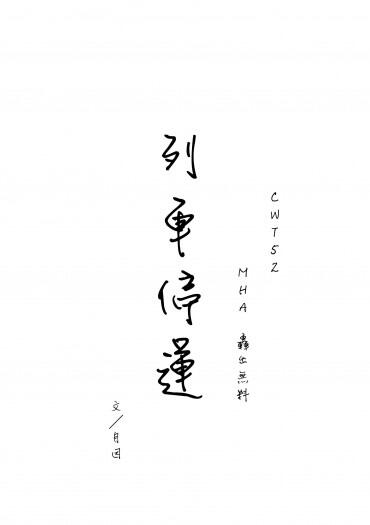 CWT52
MHA 轟出無料
列車停運
文/月因